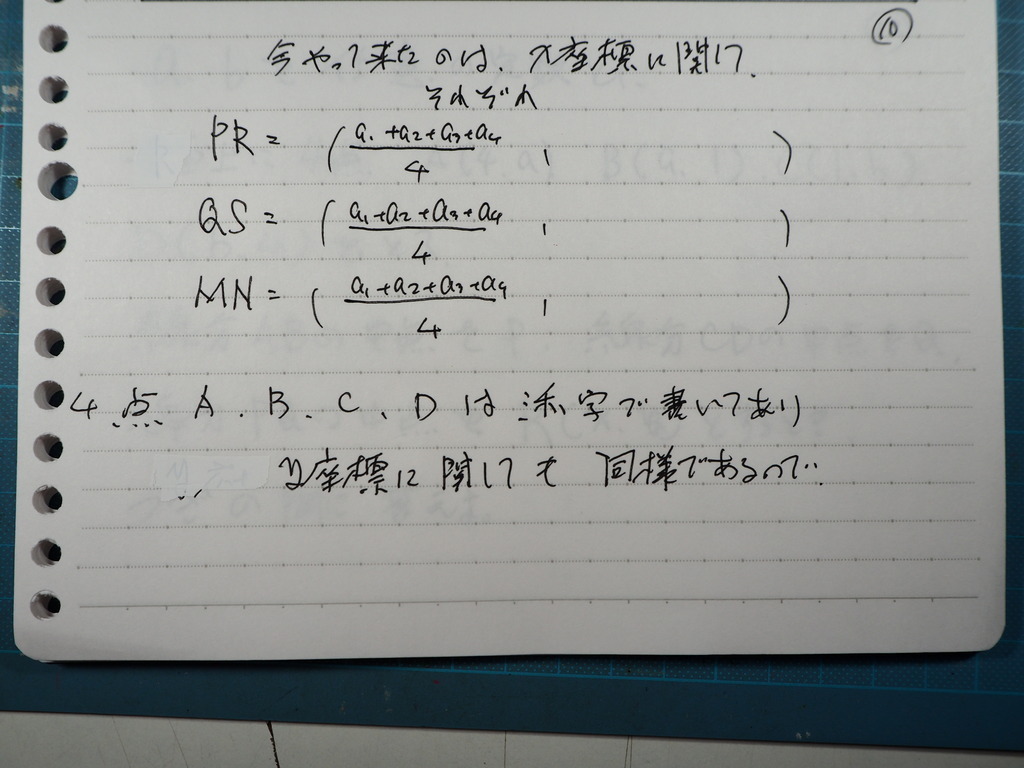 ⑩
今やって来たのは、x座標に関して、
それぞれ
PR = ( (a₁+a₂+a₃+a₄)/4 , )
QS = ( (a₁+a₂+a₃+a₄)/4 , )
MN = ( (a₁+a₂+a₃+a₄)/4 , )
4点 A、B、C、Dは 添字で書いてあり
y座標に関しても 同様であるので、